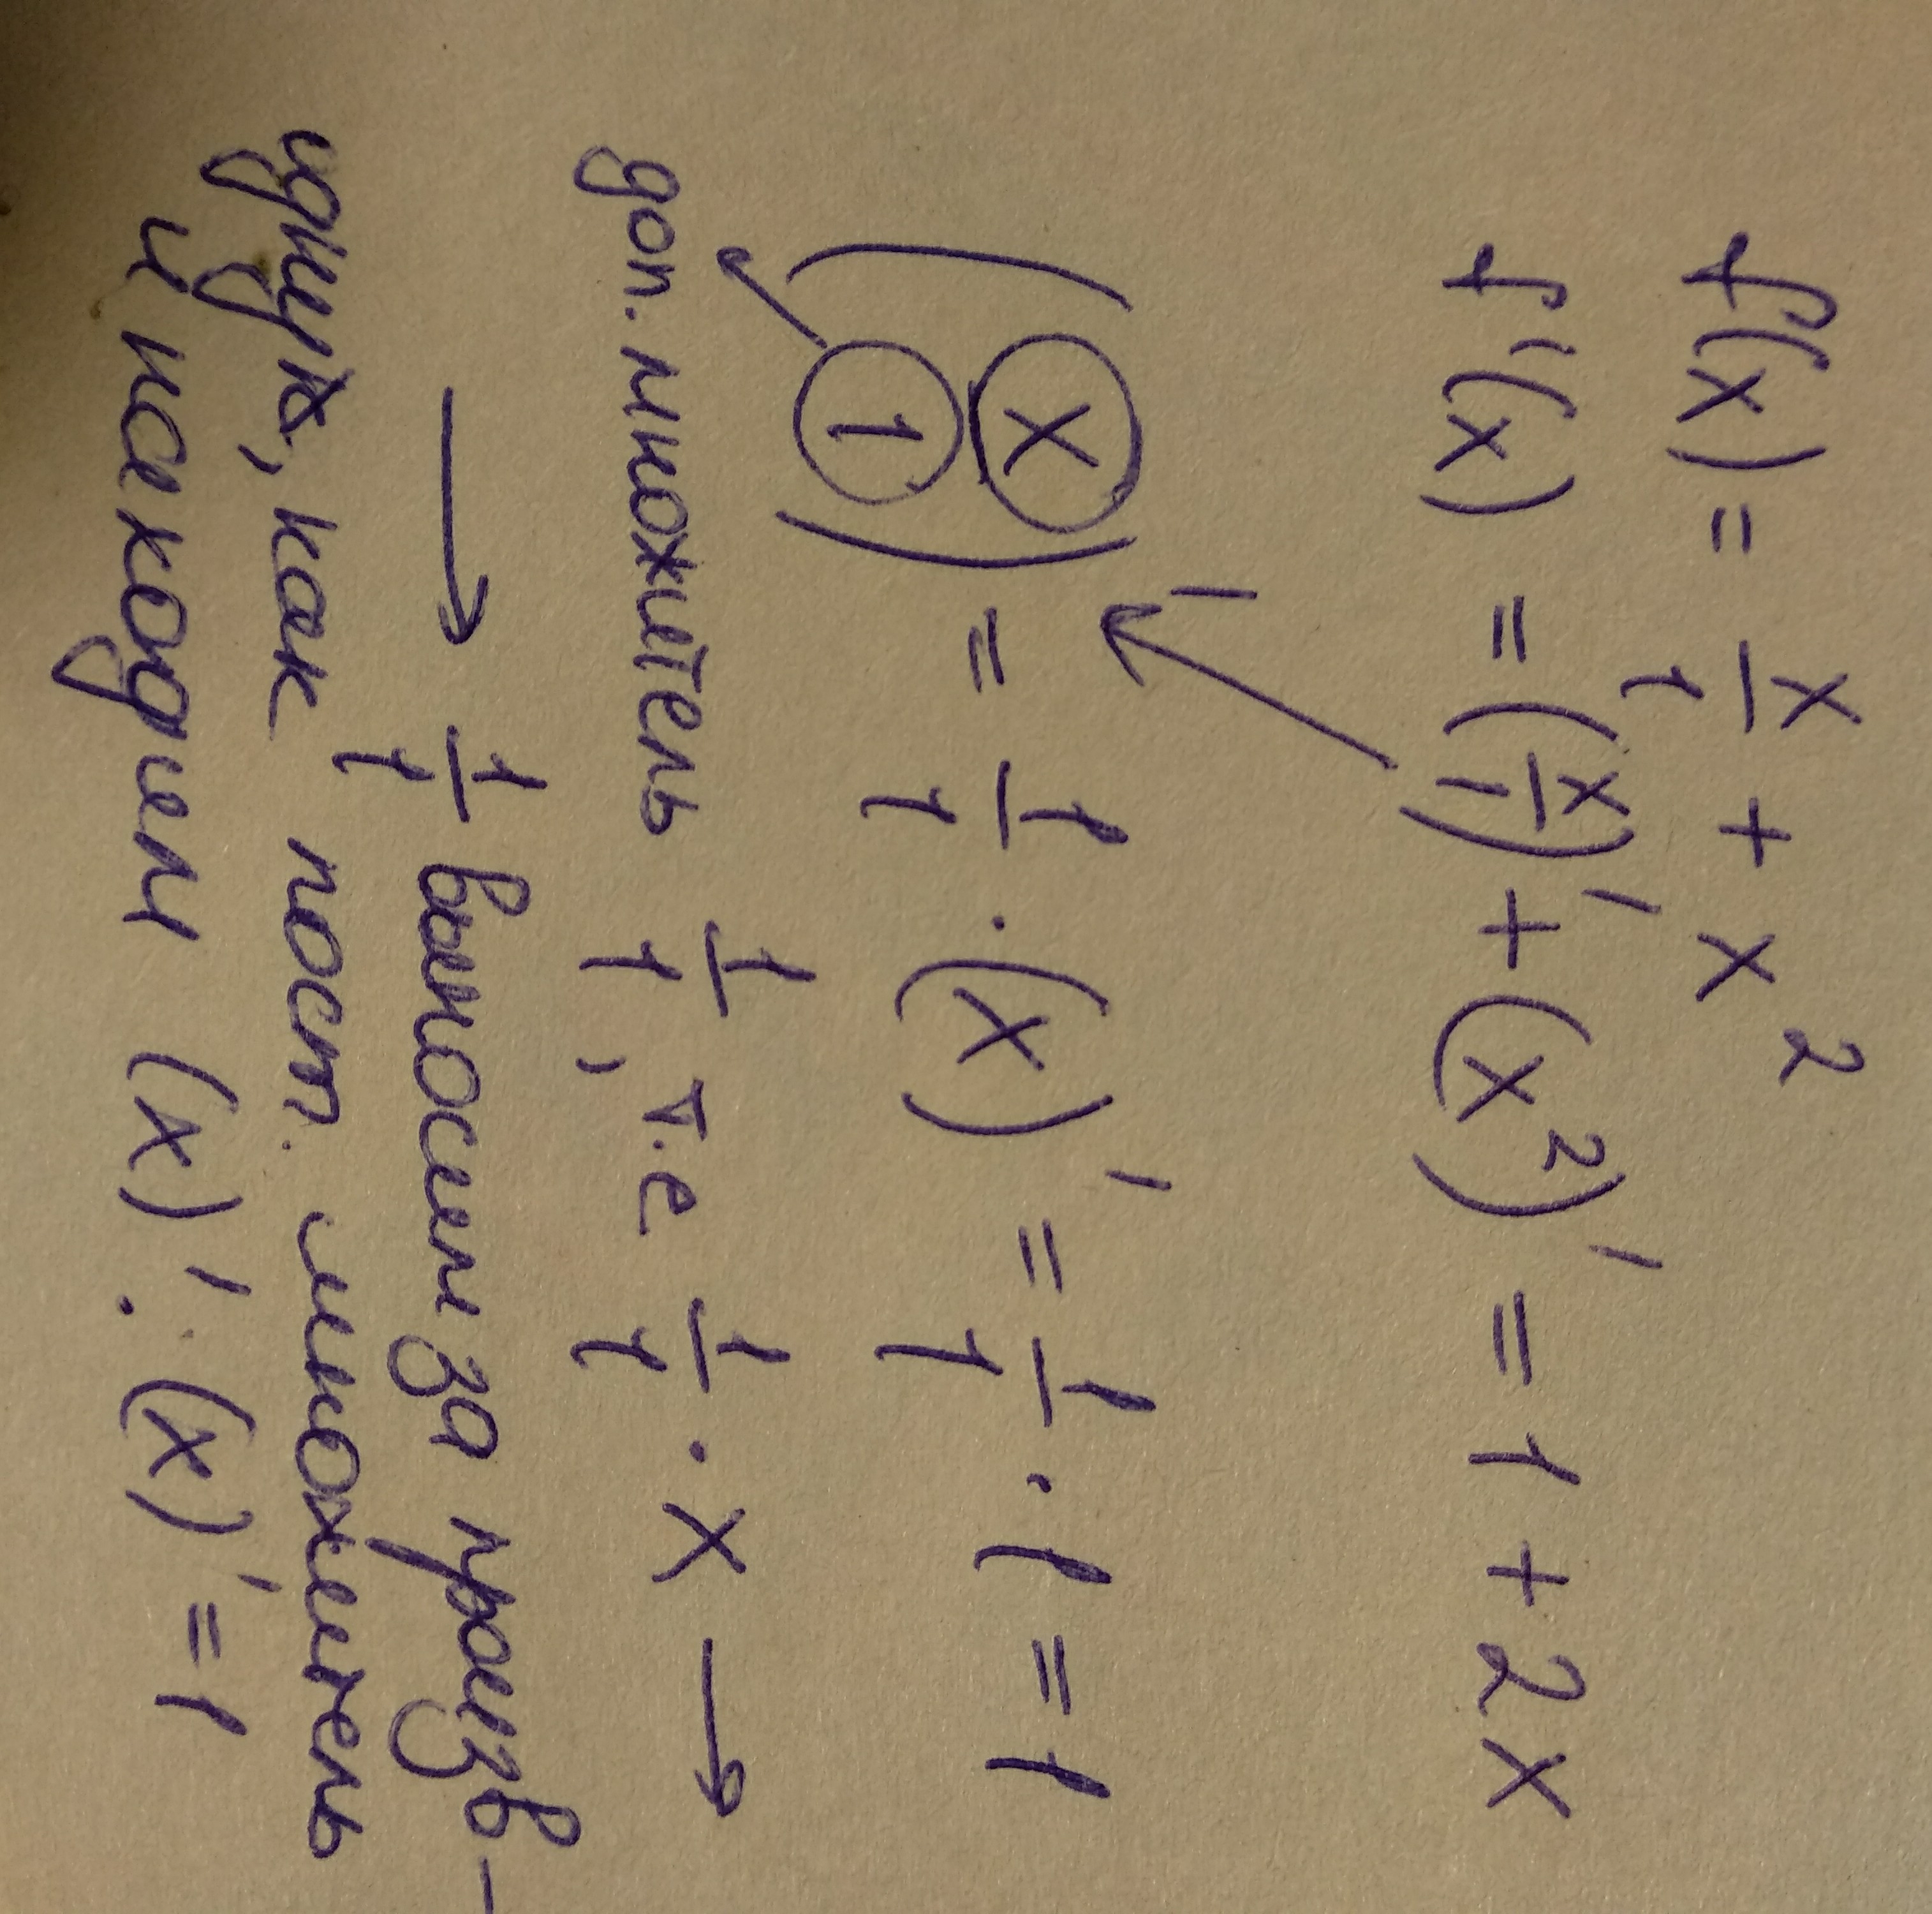 f(x) = x/1 + x²
f'(x) = (x/1)' + (x²)' = 1 + 2x
(x/1)' = 1/1 · (x)' = 1/1 · 1 = 1
доп. множитель 1/1, т.е 1/1 · x →
→ 1/1 выносим за произв-
одную, как пост. множитель
и находим (x)'. (x)' = 1